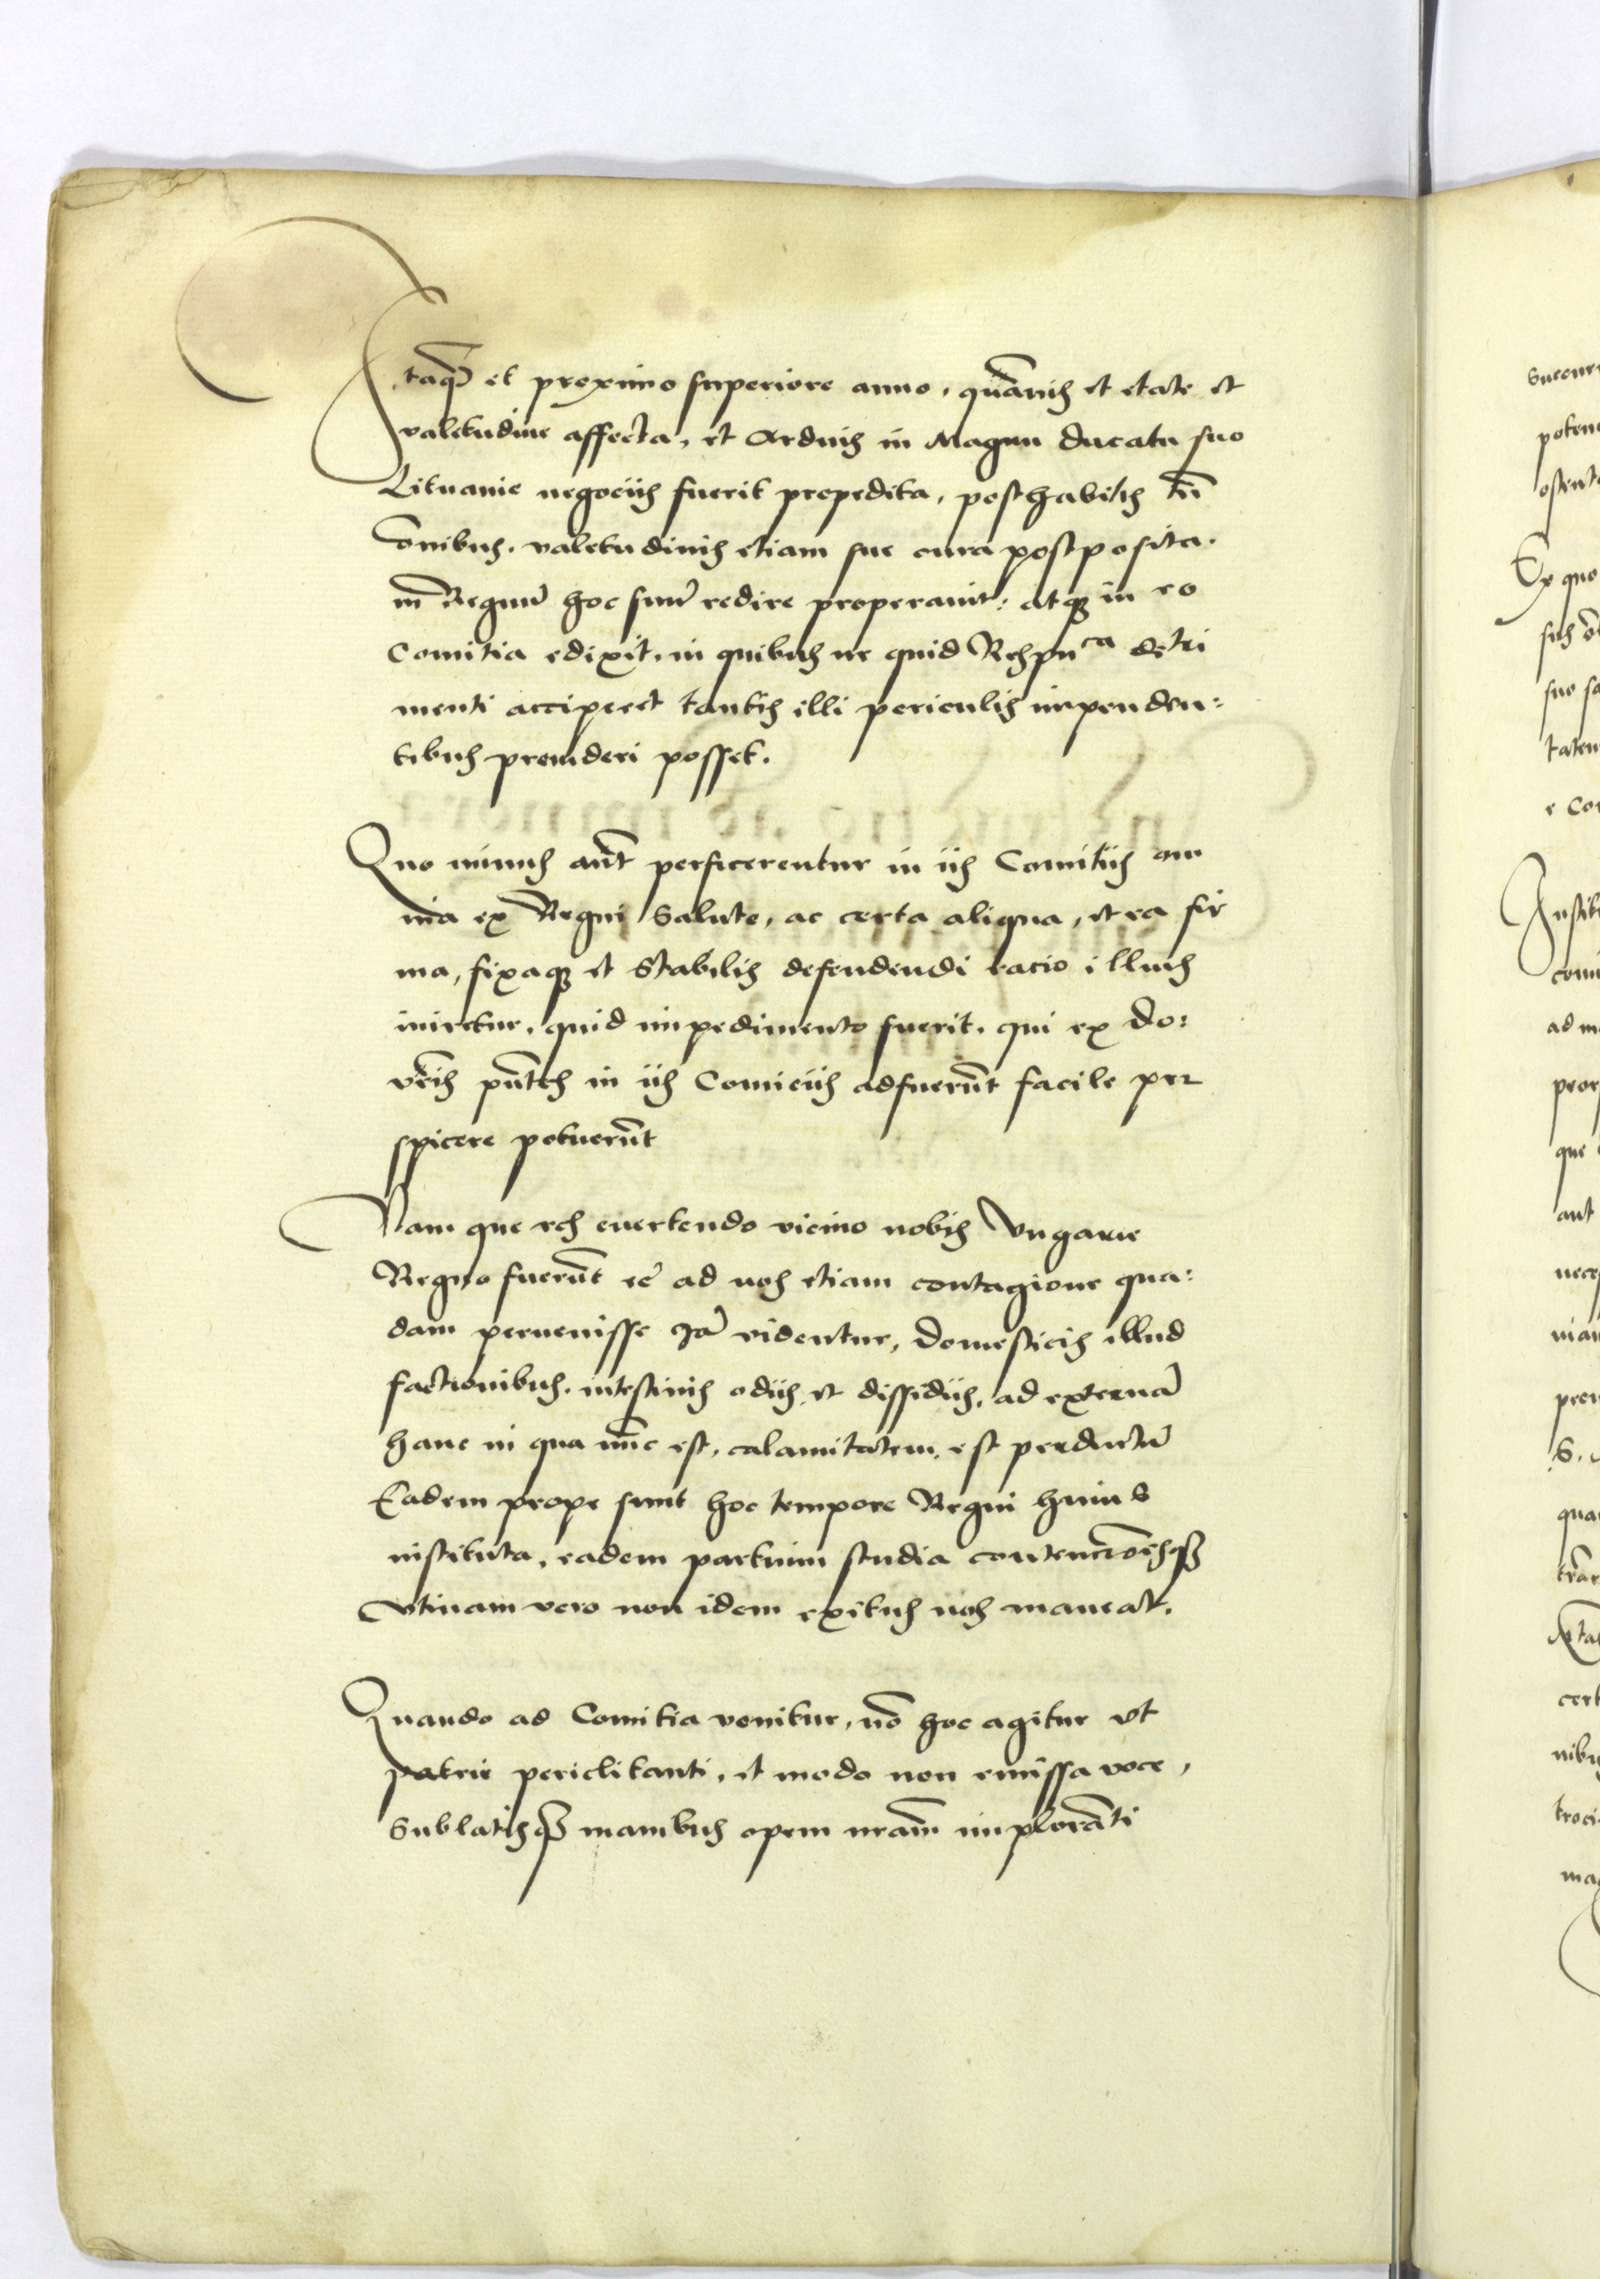 Itaq̃ et proximo superiore anno, quãuis et etate et
valetudine affecta, et Arduis in Magnu ducatu suo
Lituanie negociis fuerit prepedita, posthabitis tñ
õnibus. valetudinis etiam sue cura postposita.
in Regnũ hoc suũ redire properauit: atq3 in eo
Comitia edixit. in quibus ne quid Respuca detri
menti acciperet tantis illi periculis impenden:
tibus prouideri posset.
Quo minus aũt perficerentur in iis Comitiis om
nia ex Regni Salute, ac certa aliqua, et ea fir
ma, fixaq3 et Stabilis defendendi racio illius
iniretur, quid impedimento fuerit. qui ex Do:
vr̃is pñtes in iis Comiciis adfuerũt facile per
spicere potuerũt
Nam que res euertendo vicino nobis Vngarie
Regno fuerũt eę ad nos etiam contagione qua:
dam peruenisse Jã videntur, Domesticis illud
factionibus. intestinis odiis et dissidiis, ad externã
hanc in qua nũc est, calamitatem, est perductũ
Eadem prope sunt hoc tempore Regni huius
instituta, eadem partium studia contenciõesq3
Vtinam vero non idem exitus nos maneat.
Quando ad Comitia venitur, nõ hoc agitur vt
patrie periclitanti, et modo non emissa voce,
Sublatisq3 manibus opem nr̃am implorãti
Ex quo
suo
ad
que
ant
S.